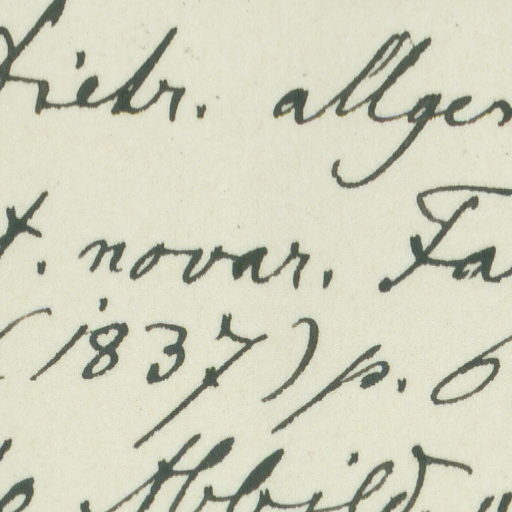 Dietr. allgem
t. novar. Fa
(1837) p. 6
Abbild.